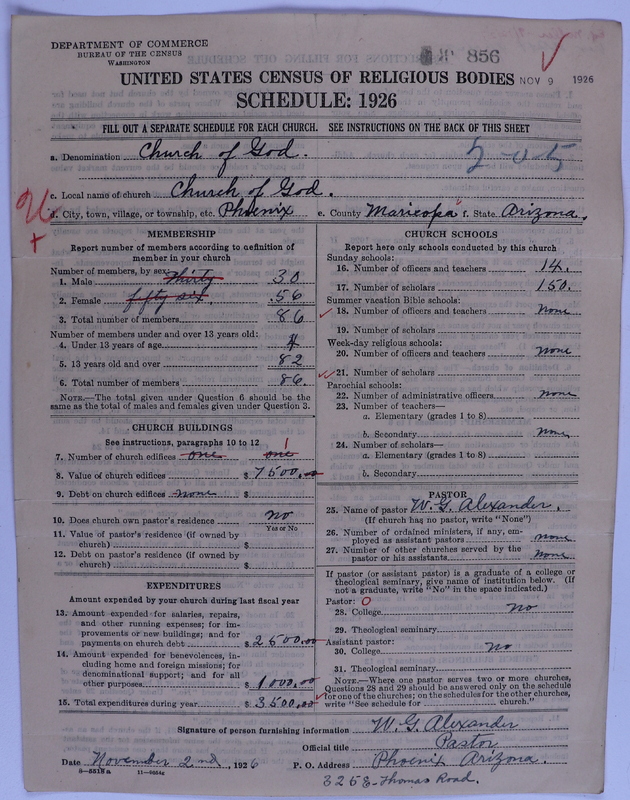 DEPARTMENT OF COMMERCE
BUREAU OF THE CENSUS
WASHINGTON
856
UNITED STATES CENSUS OF RELIGIOUS BODIES NOV 9 1926
SCHEDULE: 1926
FILL OUT A SEPARATE SCHEDULE FOR EACH CHURCH. SEE INSTRUCTIONS ON THE BACK OF THIS SHEET
a. Denomination Church of God.
2-0-5
c. Local name of church Church of God.
d. City, town, village, or township, etc. Phoenix e. County Maricopa f. State Arizona.
MEMBERSHIP
Report number of members according to definition of
member in your church
Number of members, by sex:
1. Male Thirty 30
2. Female fifty six. 56
3. Total number of members 86
Number of members under and over 13 years old:
4. Under 13 years of age 4
5. 13 years old and over 82
6. Total number of members 86.
NOTE.—The total given under Question 6 should be
same as the total of males and females given under Question 3.
CHURCH BUILDINGS
See instructions, paragraphs 10 to 12
7. Number of church edifices one one 1
8. Value of church edifices $ 7500.00
9. Debt on church edifices none $
10. Does church own pastor's residence no
Yes or No
11. Value of pastor's residence (if owned by
church) $
12. Debt on pastor's residence (if owned by
church) $
EXPENDITURES
Amount expended by your church during last fiscal year
13. Amount expended for salaries, repairs,
and other running expenses; for im-
provements or new buildings; and for
payments on church debt $ 2500.00
14. Amount expended for benevolences, in-
cluding home and foreign missions; for
denominational support; and for all
other purposes $ 1000.00
15. Total expenditures during year $ 3500.00
CHURCH SCHOOLS
Report here only schools conducted by this church
Sunday schools:
16. Number of officers and teachers 14.
17. Number of scholars 150.
Summer vacation Bible schools:
18. Number of officers and teachers none
19. Number of scholars
Week-day religious schools:
20. Number of officers and teachers none
21. Number of scholars
Parochial schools:
22. Number of administrative officers none
23. Number of teachers—
a. Elementary (grades 1 to 8)
b. Secondary none
24. Number of scholars—
a. Elementary (grades 1 to 8)
b. Secondary
PASTOR
25. Name of pastor W. G. Alexander.
(If church has no pastor, write "None")
26. Number of ordained ministers, if any, em-
ployed as assistant pastors none
27. Number of other churches served by the
pastor or his assistants none
If pastor (or assistant pastor) is a graduate of a college or
theological seminary, give name of institution below. (If
not a graduate, write "No" in the space indicated.)
Pastor: O
28. College no
29. Theological seminary
Assistant pastor:
30. College no
31. Theological seminary
NOTE.—Where one pastor serves two or more churches,
Questions 28 and 29 should be answered only on the schedule
for one of the churches; on the schedules for the other churches,
write "See schedule for church."
Signature of person furnishing information W. G. Alexander
Official title Pastor
Date November 2nd, 1926 P. O. Address Phoenix Arizona.
8-5518a 11-9664c
3258-Thomas Road.